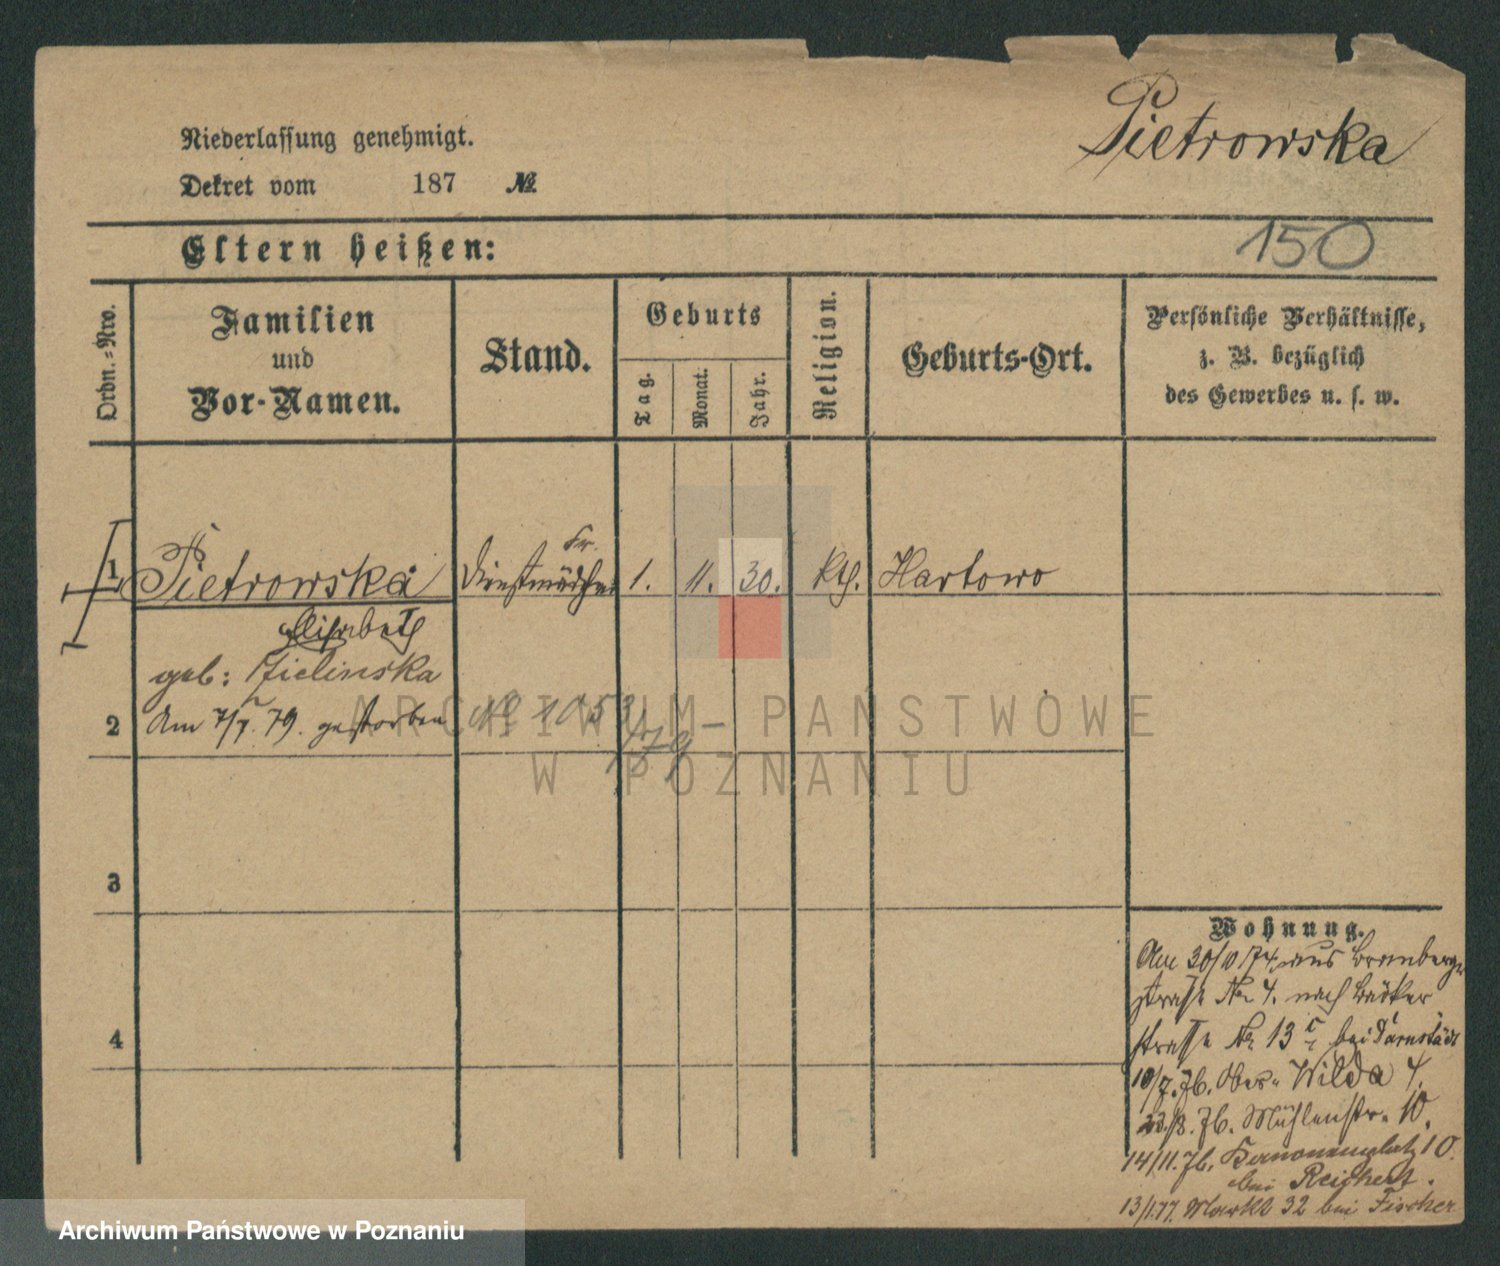 Pietrowska
Niederlassung genehmigt.
Dekret vom 187 №
Eltern heißen:
150
Ordn.-Nro.
Familien
und
Vor-Namen.
Stand.
Geburts
Tag.
Monat.
Jahr.
Religion.
Geburts-Ort.
Persönliche Verhältnisse,
z. B. bezüglich
des Gewerbes u. s. w.
Fr.
1 Pietrowska Dienstmädchen 1. 11. 30. Kth. Hartowo
Elisabeth
geb: Zielinska
2 Am 7/7. 79. gestorben № 1053
/79
ARCHIWUM PAŃSTWOWE
W POZNANIU
3
4
Wohnung.
Am 30/10 74 aus Bromberger
strasse No 4. nach Bäcker
strasse No 13 bei Darnstädt
10/7. 76. Ober-Wilda 4.
23/8. 76. Mühlenstr. 10.
14/11. 76. Kanonenplatz 10.
bei Reichert.
13/1. 77. Markt 32 bei Fischer
Archiwum Państwowe w Poznaniu